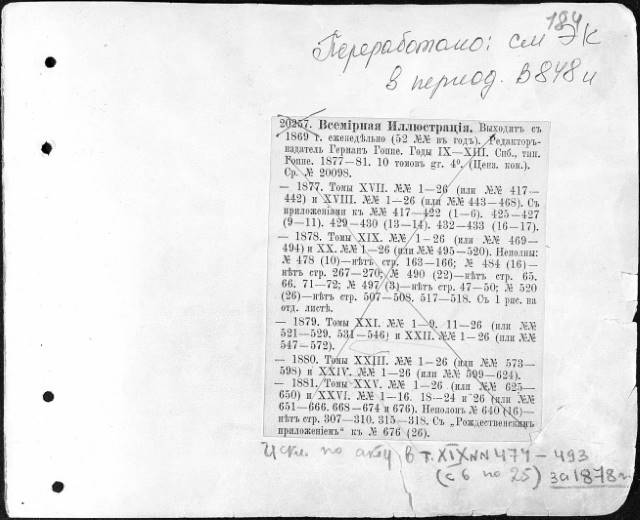 184
Переработано: см ЭК
в период. В848и
20257. Всемірная Иллюстрація. Выходитъ съ
1869 г. еженедѣльно (52 №№ въ годъ). Редакторъ-
издатель Германъ Гоппе. Годы IX—XIII. Спб., тип.
Гоппе. 1877—81. 10 томовъ gr. 4⁰. (Ценз. кон.).
Ср. № 20098.
— 1877. Томы XVII. №№ 1—26 (или №№ 417—
442) и XVIII. №№ 1—26 (или №№ 443—468). Съ
приложеніями къ №№ 417—422 (1—6). 425—427
(9—11). 429—430 (13—14). 432—433 (16—17).
— 1878. Томы XIX. №№ 1—26 (или №№ 469—
494) и XX. №№ 1—26 (или №№ 495—520). Неполны:
№ 478 (10)—нѣтъ стр. 163—166; № 484 (16)—
нѣтъ стр. 267—270; № 490 (22)—нѣтъ стр. 65.
66. 71—72; № 497 (3)—нѣтъ стр. 47—50; № 520
(26)—нѣтъ стр. 507—508. 517—518. Съ 1 рис. на
отд. листѣ.
— 1879. Томы XXI. №№ 1—9. 11—26 (или №№
521—529. 531—546) и XXII. №№ 1—26 (или №№
547—572).
— 1880. Томы XXIII. №№ 1—26 (или №№ 573—
598) и XXIV. №№ 1—26 (или №№ 599—624).
— 1881. Томы XXV. №№ 1—26 (или №№ 625—
650) и XXVI. №№ 1—16. 18—24 и 26 (или №№
651—666. 668—674 и 676). Неполонъ № 640 (16)—
нѣтъ стр. 307—310. 315—318. Съ „Рождественскимъ
приложеніемъ“ къ № 676 (26).
Искл. по акту в т. XIX NN 474–493
(с 6 по 25) за 1878 г.